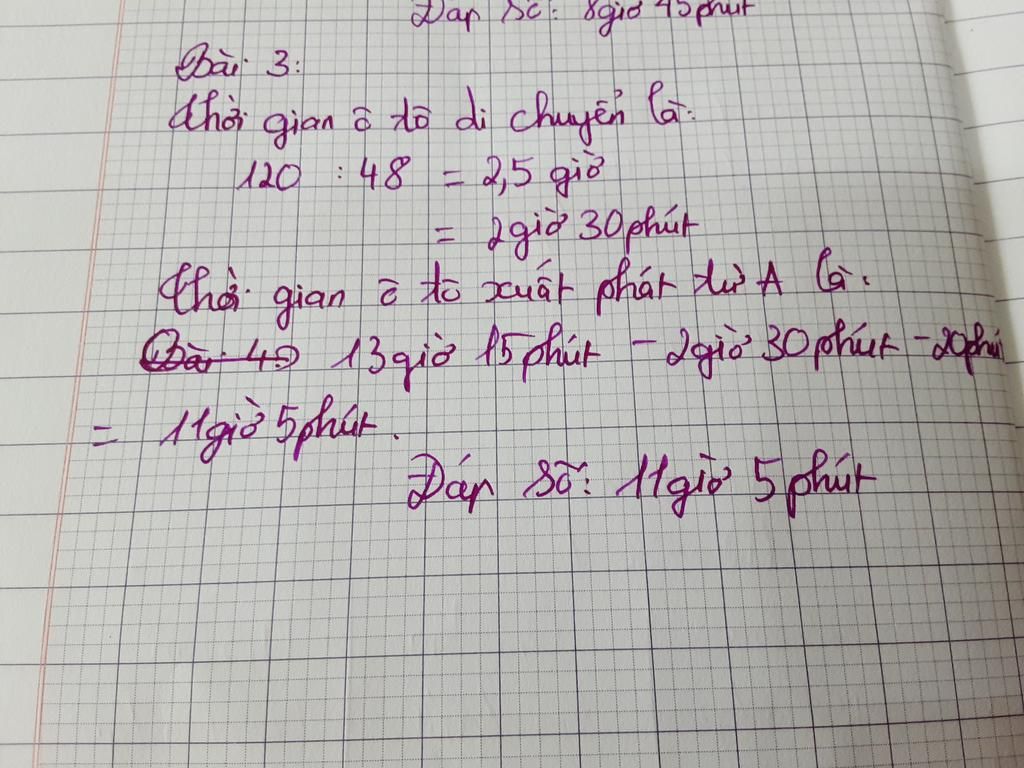 Đáp số: 8giờ 45phút
Bài 3:
Thời gian ô tô di chuyển là:
120 : 48 = 2,5 giờ
= 2giờ 30phút
Thời gian ô tô xuất phát từ A là:
Bài 4: 13giờ 15phút - 2giờ 30phút - 20phút
= 11giờ 5phút.
Đáp số: 11giờ 5phút